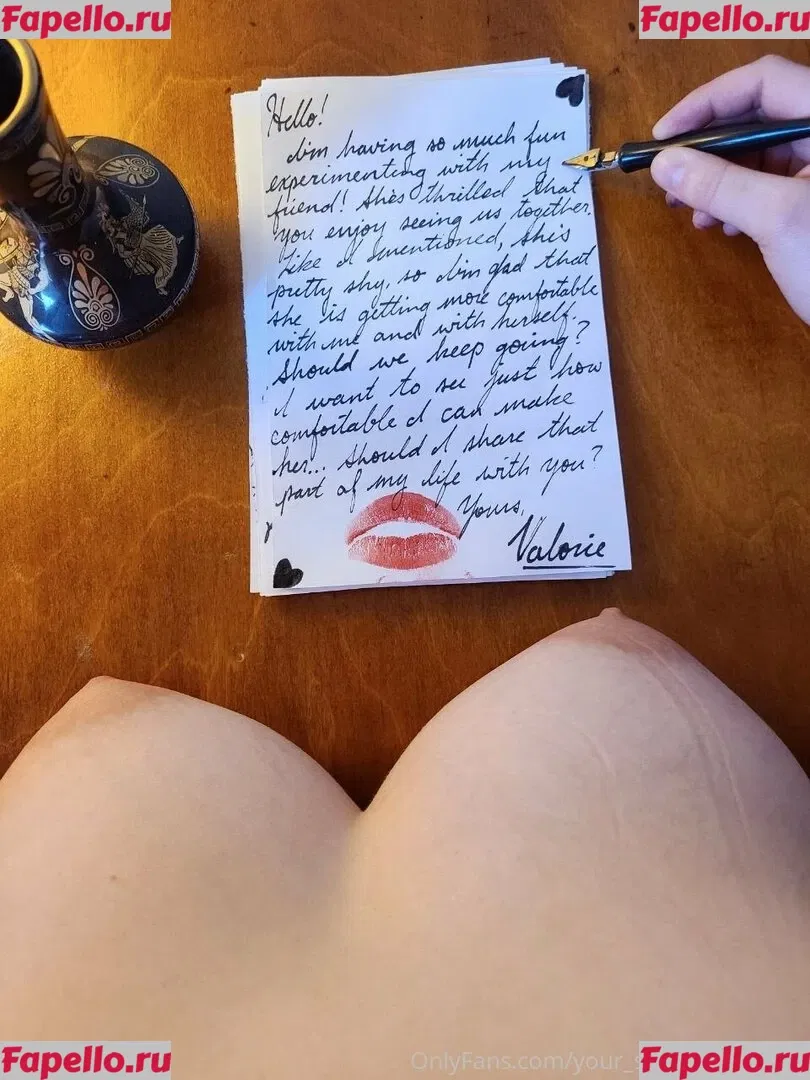 Fapello.ru
Fapello.ru
Hello!
I'm having so much fun
experimenting with my
friend! She's thrilled that
you enjoy seeing us together.
Like I mentioned, she's
pretty shy, so I'm glad that
she is getting more comfortable
with me and with herself.
Should we keep going?
I want to see just how
comfortable I can make
her... Should I share that
part of my life with you?
Yours,
Valorie
Fapello.ru
OnlyFans.com/your_
Fapello.ru